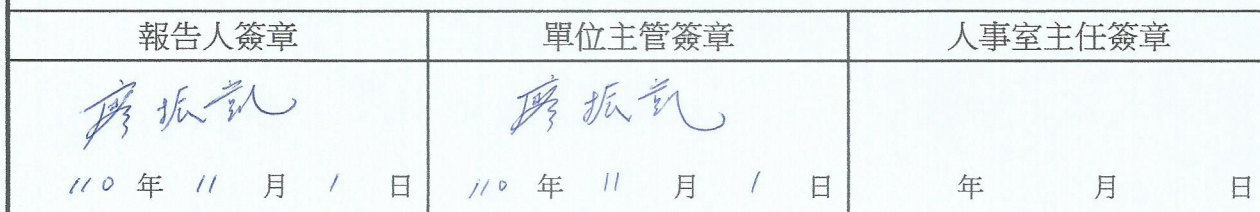 報告人簽章 單位主管簽章 人事室主任簽章
廖振凱 廖振凱
110 年 11 月 1 日 110 年 11 月 1 日 年 月 日